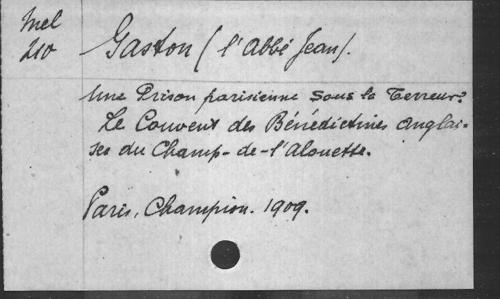 Mel
210
Gaston (l'Abbé Jean).
Une Prison parisienne sous la Terreur:
Le Couvent des Bénédictines anglai-
ses du Champ-de-l'Alouette.
Paris, Champion. 1909.